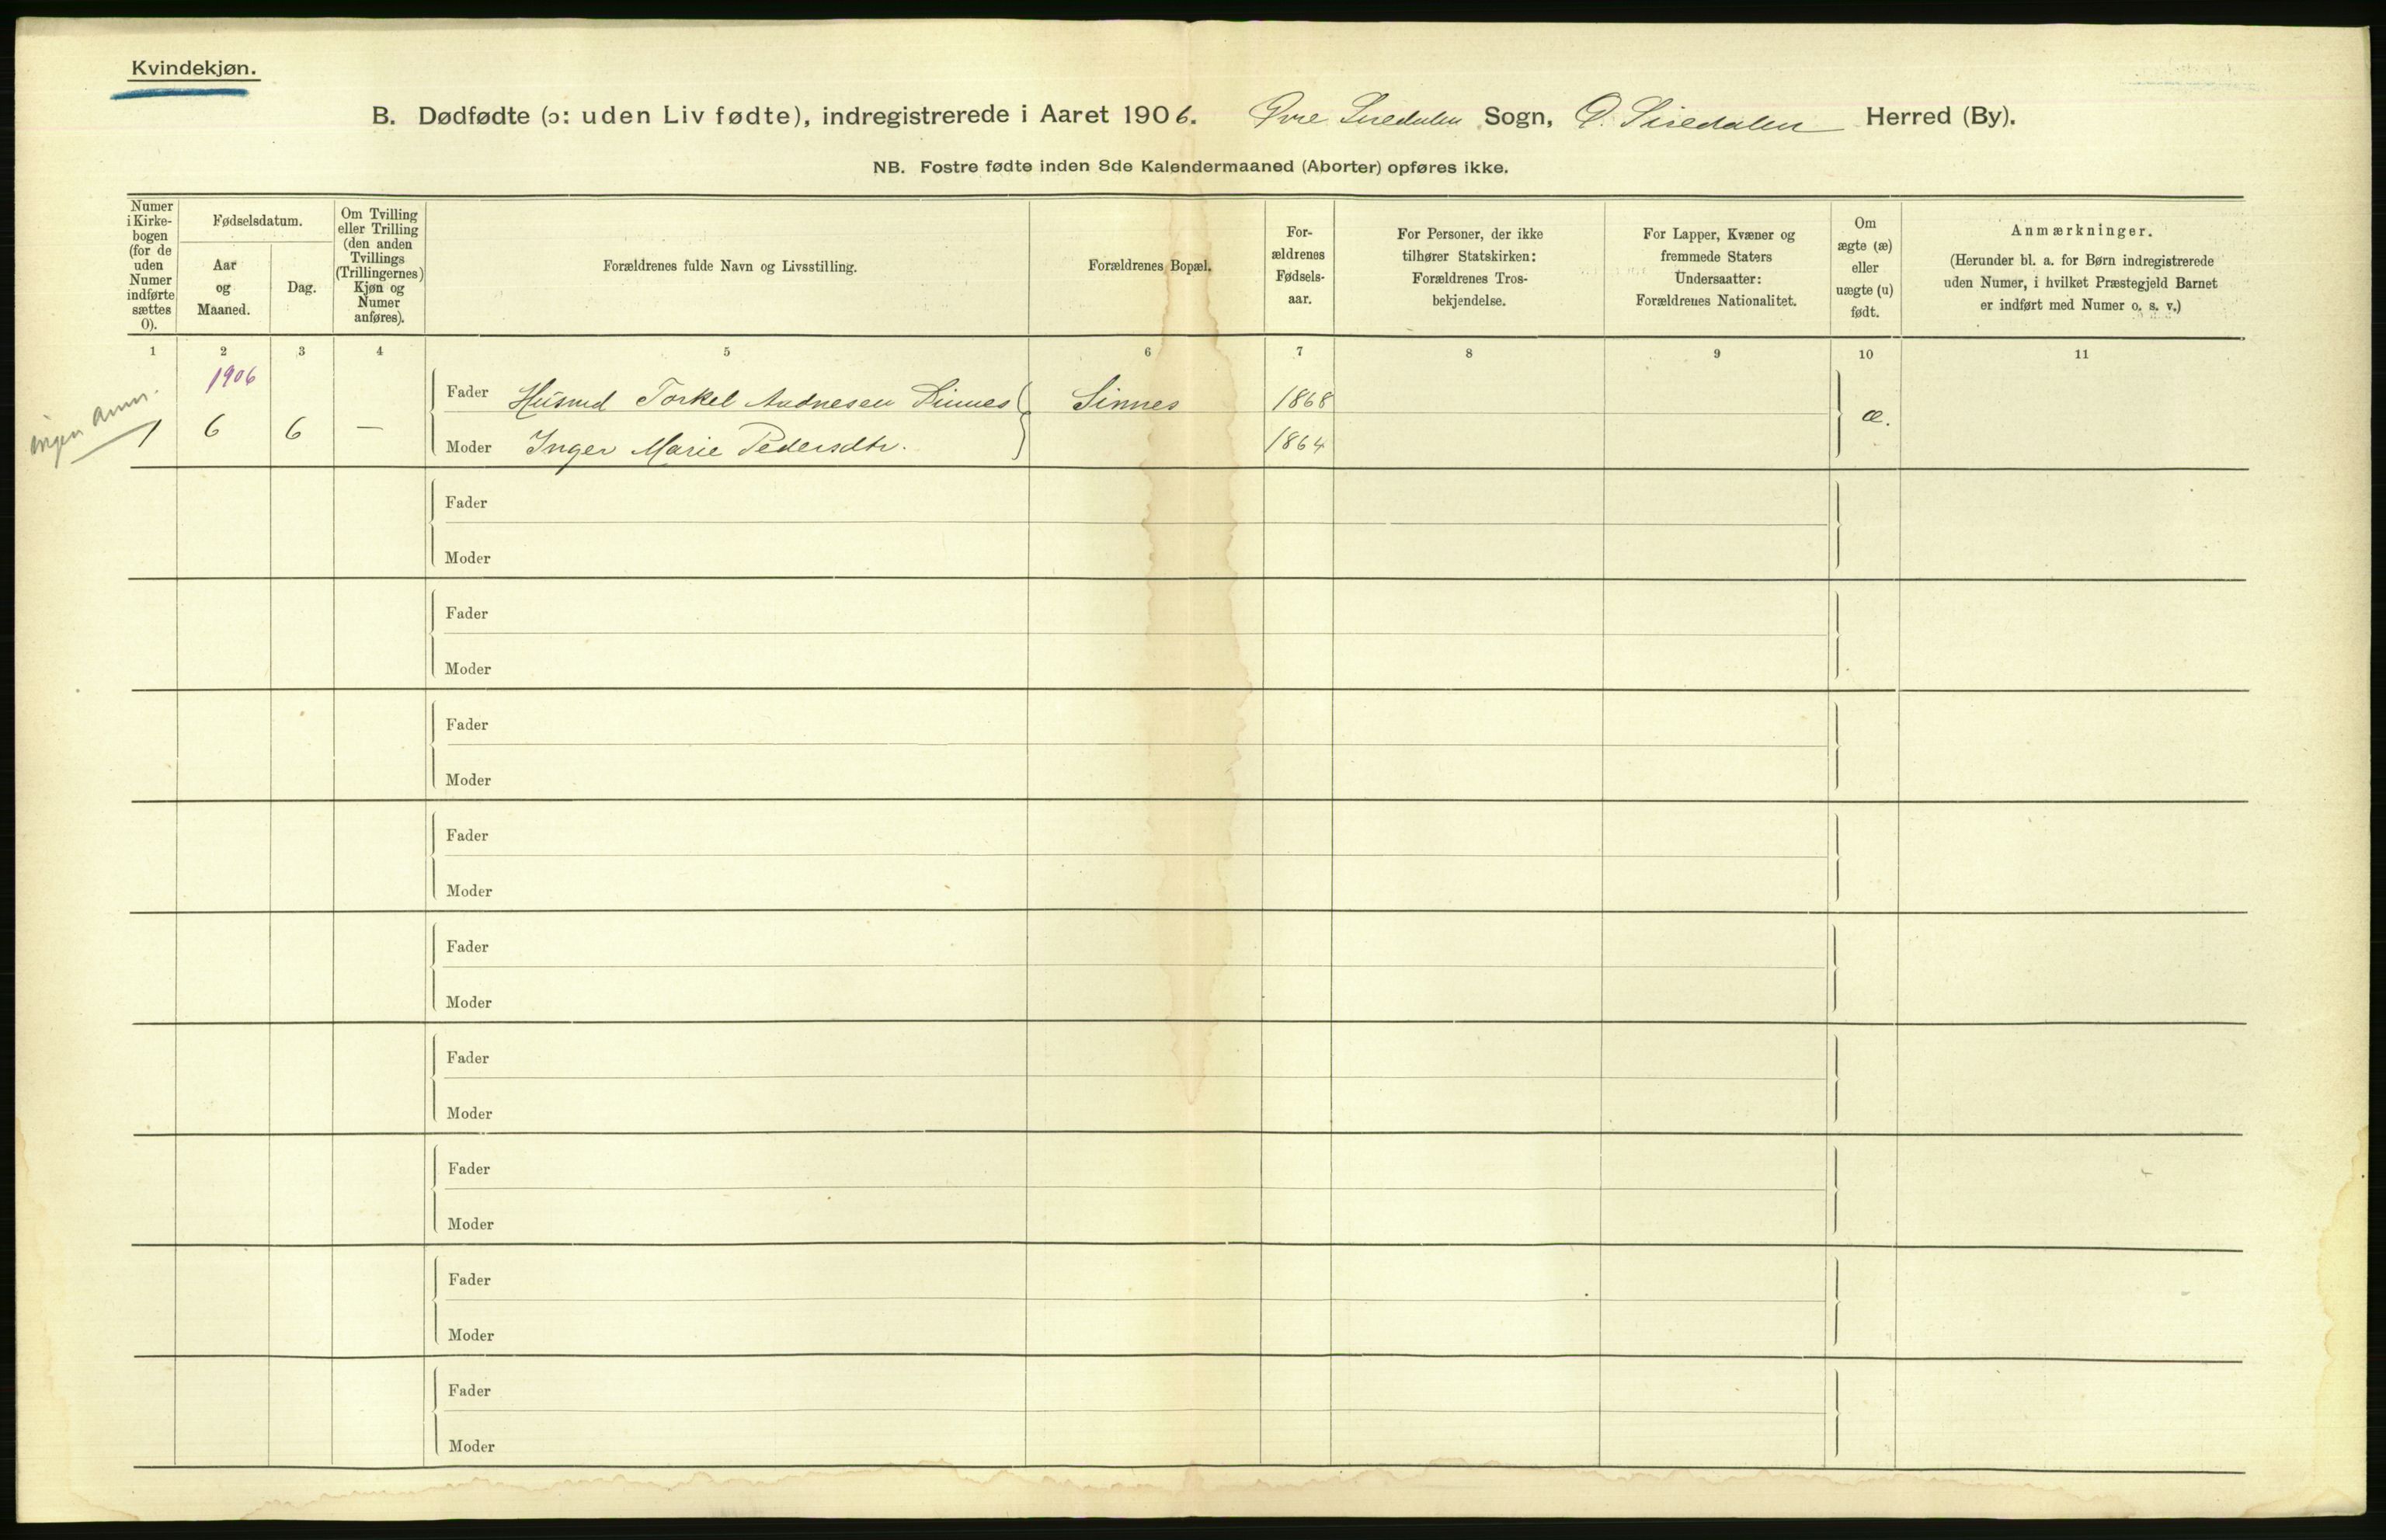 Kvindekjøn.
B. Dødfødte (ɔ: uden Liv fødte), indregistrerede i Aaret 1906. Øvre Siredalen Sogn, Ø. Siredalen Herred (By).
NB. Fostre fødte inden 8de Kalendermaaned (Aborter) opføres ikke.
Numer i Kirkebogen (for de uden Numer indførte sættes 0).
Fødselsdatum.
Aar og Maaned.
Dag.
Om Tvilling eller Trilling (den anden Tvillings (Trillingernes) Kjøn og Numer anføres).
Forældrenes fulde Navn og Livsstilling.
Forældrenes Bopæl.
For-ældrenes Fødsels-aar.
For Personer, der ikke tilhører Statskirken: Forældrenes Tros-bekjendelse.
For Lapper, Kvæner og fremmede Staters Undersaatter: Forældrenes Nationalitet.
Om ægte (æ) eller uægte (u) født.
Anmærkninger.
(Herunder bl. a. for Børn indregistrerede uden Numer, i hvilket Præstegjeld Barnet er indført med Numer o. s. v.)
1 2 3 4 5 6 7 8 9 10 11
1906
ingen anm.
Fader Husmd Torkel Andnesen Sinnes Sinnes 1868
1 6 6 — æ.
Moder Inger Marie Pedersdtr. 1864
Fader
Moder
Fader
Moder
Fader
Moder
Fader
Moder
Fader
Moder
Fader
Moder
Fader
Moder
Fader
Moder
Fader
Moder